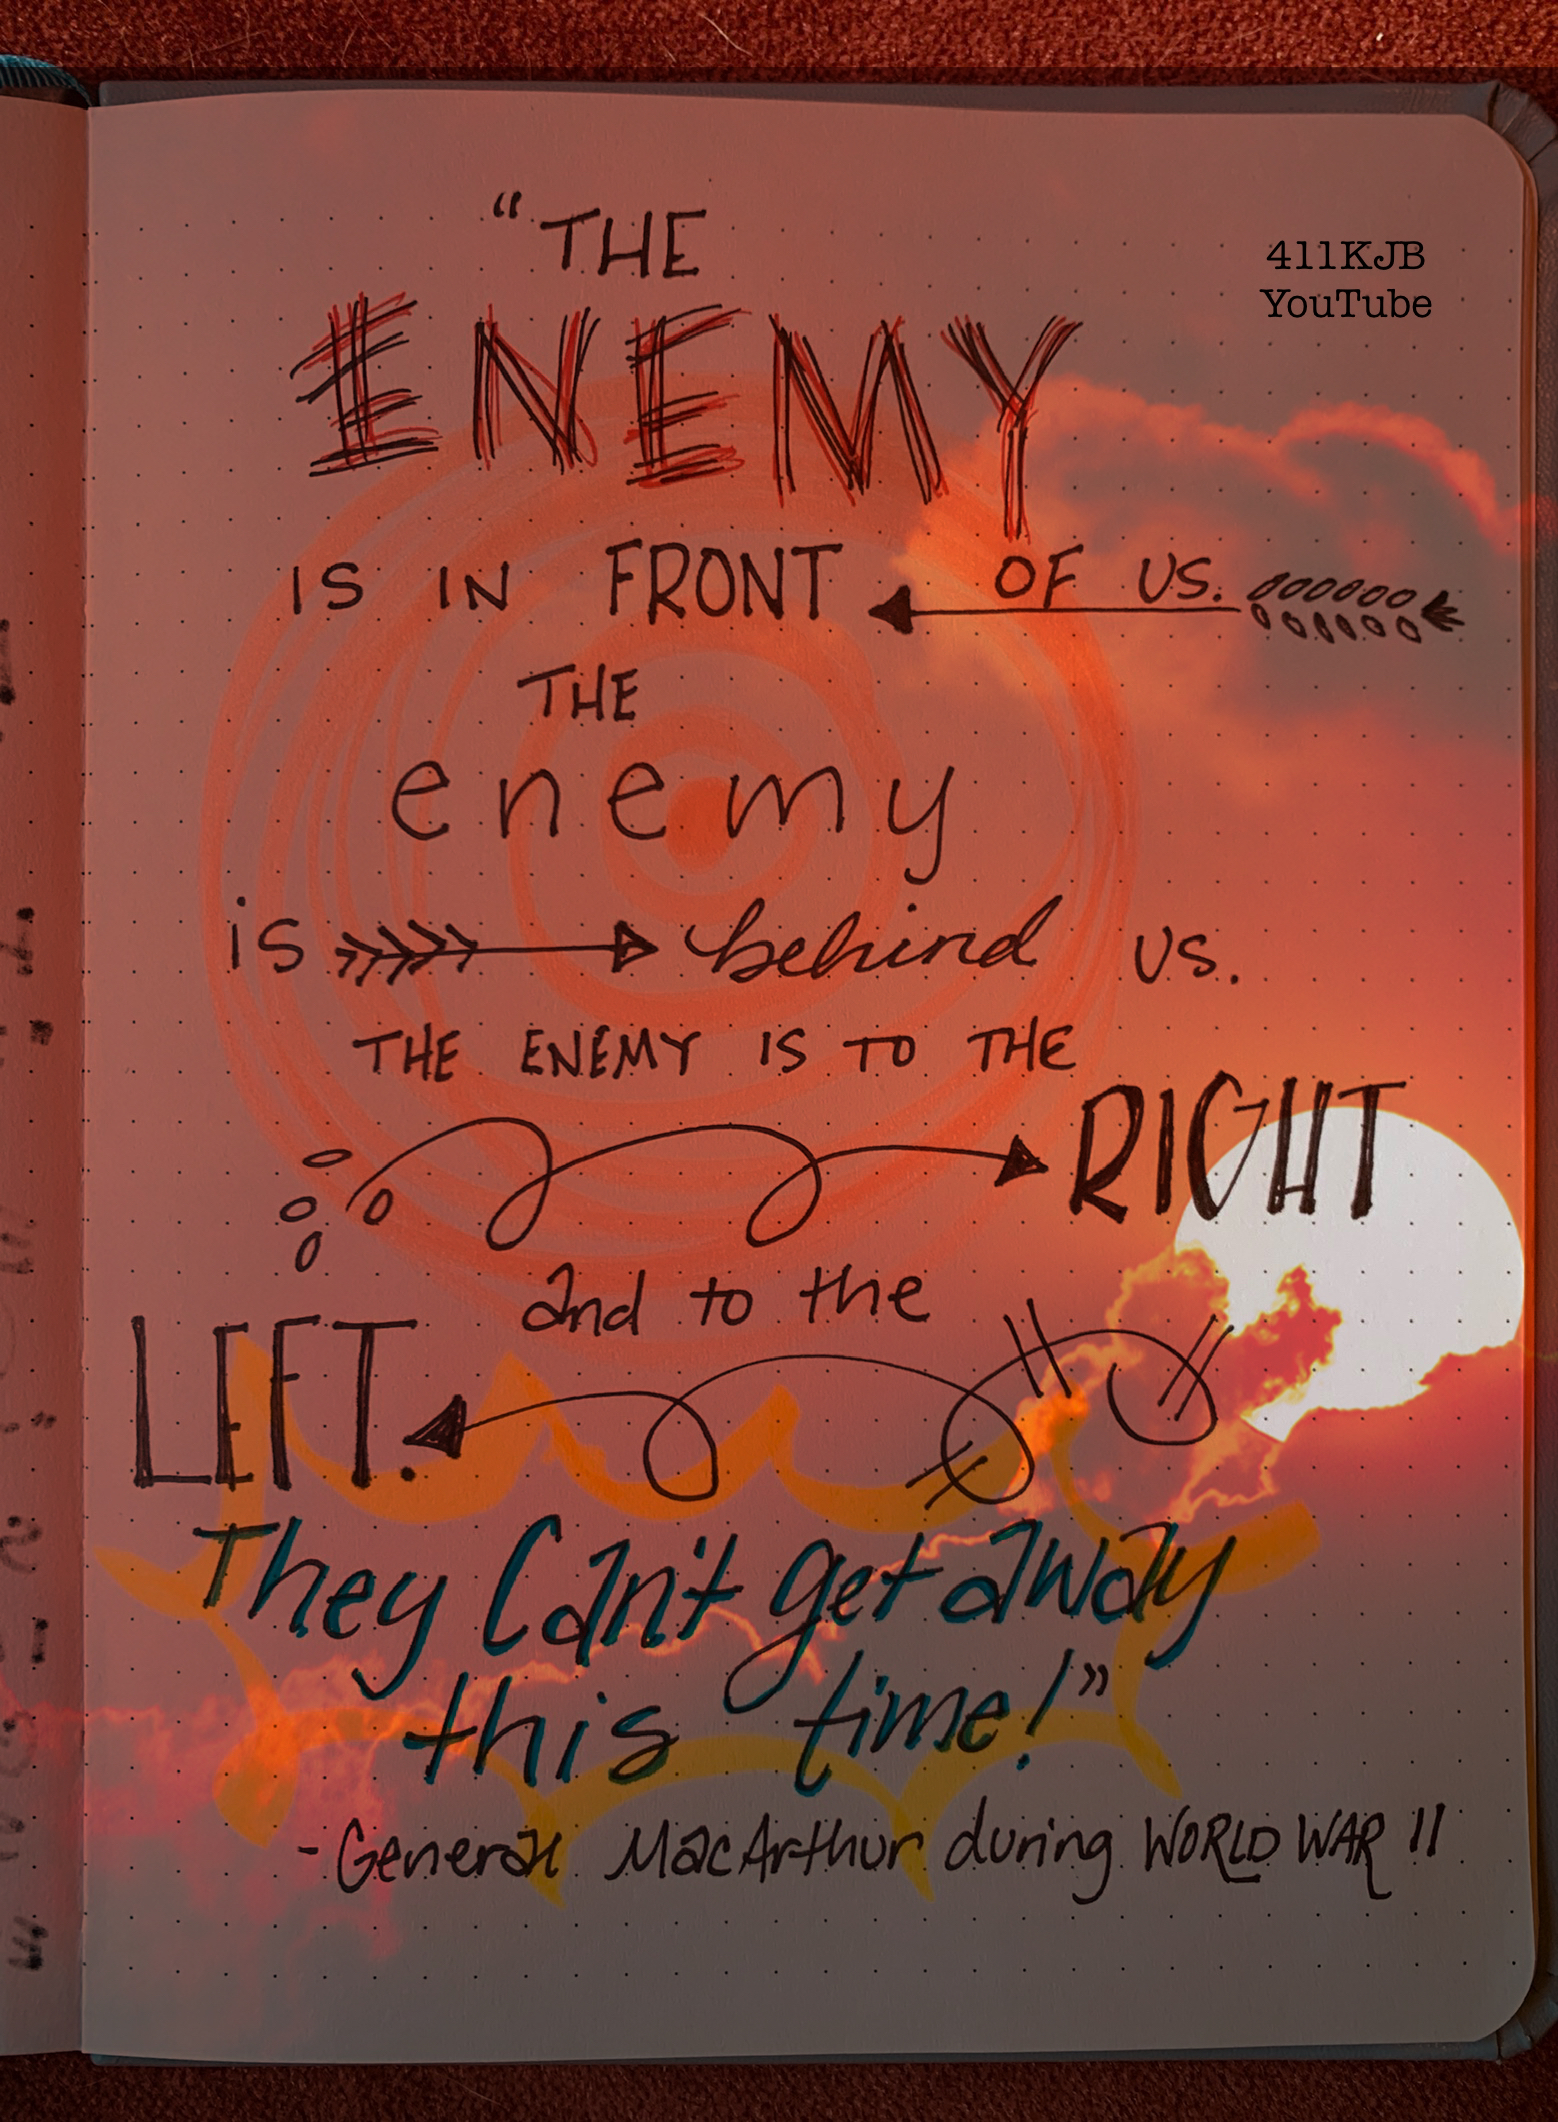 "THE
411KJB
YouTube
ENEMY
IS IN FRONT OF US.
THE
enemy
is behind us.
THE ENEMY IS TO THE
RIGHT
and to the
LEFT.
They Can't get away
this time!"
- General MacArthur during WORLD WAR II